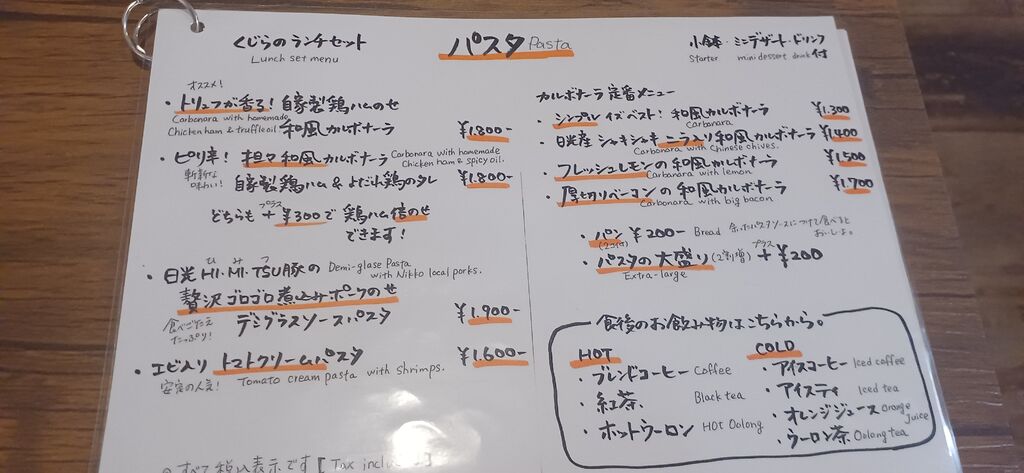 くじらのランチセット
Lunch set menu
パスタ Pasta
小鉢・ミニデザート・ドリンク付
Starter mini dessert drink
オススメ!
・トリュフが香る!自家製鶏ハムのせ
Carbonara with homemade
Chicken ham & truffle oil 和風カルボナーラ ¥1.800-
・ピリ辛!担々和風カルボナーラ Carbonara with homemade
Chicken ham & spicy oil.
斬新な
味わい! 自家製鶏ハム&よだれ鶏のタレ ¥1.800-
どちらも+¥300で鶏ハム倍のせ
プラス
できます!
・日光HI・MI・TSU豚の Demi-glase Pasta
ひみつ
with Nikko local porks.
贅沢ゴロゴロ煮込みポークのせ
食べごたえ
たっぷり! デミグラスソースパスタ ¥1.900-
・エビ入りトマトクリームパスタ ¥1.600-
安定の人気! Tomato cream pasta with shrimps.
○すべて税込表示です[Tax included]
カルボナーラ定番メニュー
・シンプルイズベスト!和風カルボナーラ ¥1.300
Carbonara
・日光産シャキシャキニラ入り和風カルボナーラ ¥1.400
Carbonara with Chinese chives.
・フレッシュレモンの和風カルボナーラ ¥1.500
Carbonara with lemon
・厚切りベーコンの和風カルボナーラ ¥1.700
Carbonara with big bacon
・パン ¥200- Bread 余ったパスタソースにつけて食べると
おいしいよ。
(2コ付)
・パスタの大盛り(2割増)+¥200
プラス
Extra-large
食後のお飲み物はこちらから。
HOT
・ブレンドコーヒー Coffee
・紅茶 Black tea
・ホットウーロン HOT Oolong
COLD
・アイスコーヒー Iced coffee
・アイスティ Iced tea
・オレンジジュース Orange
juice
・ウーロン茶 Oolong tea